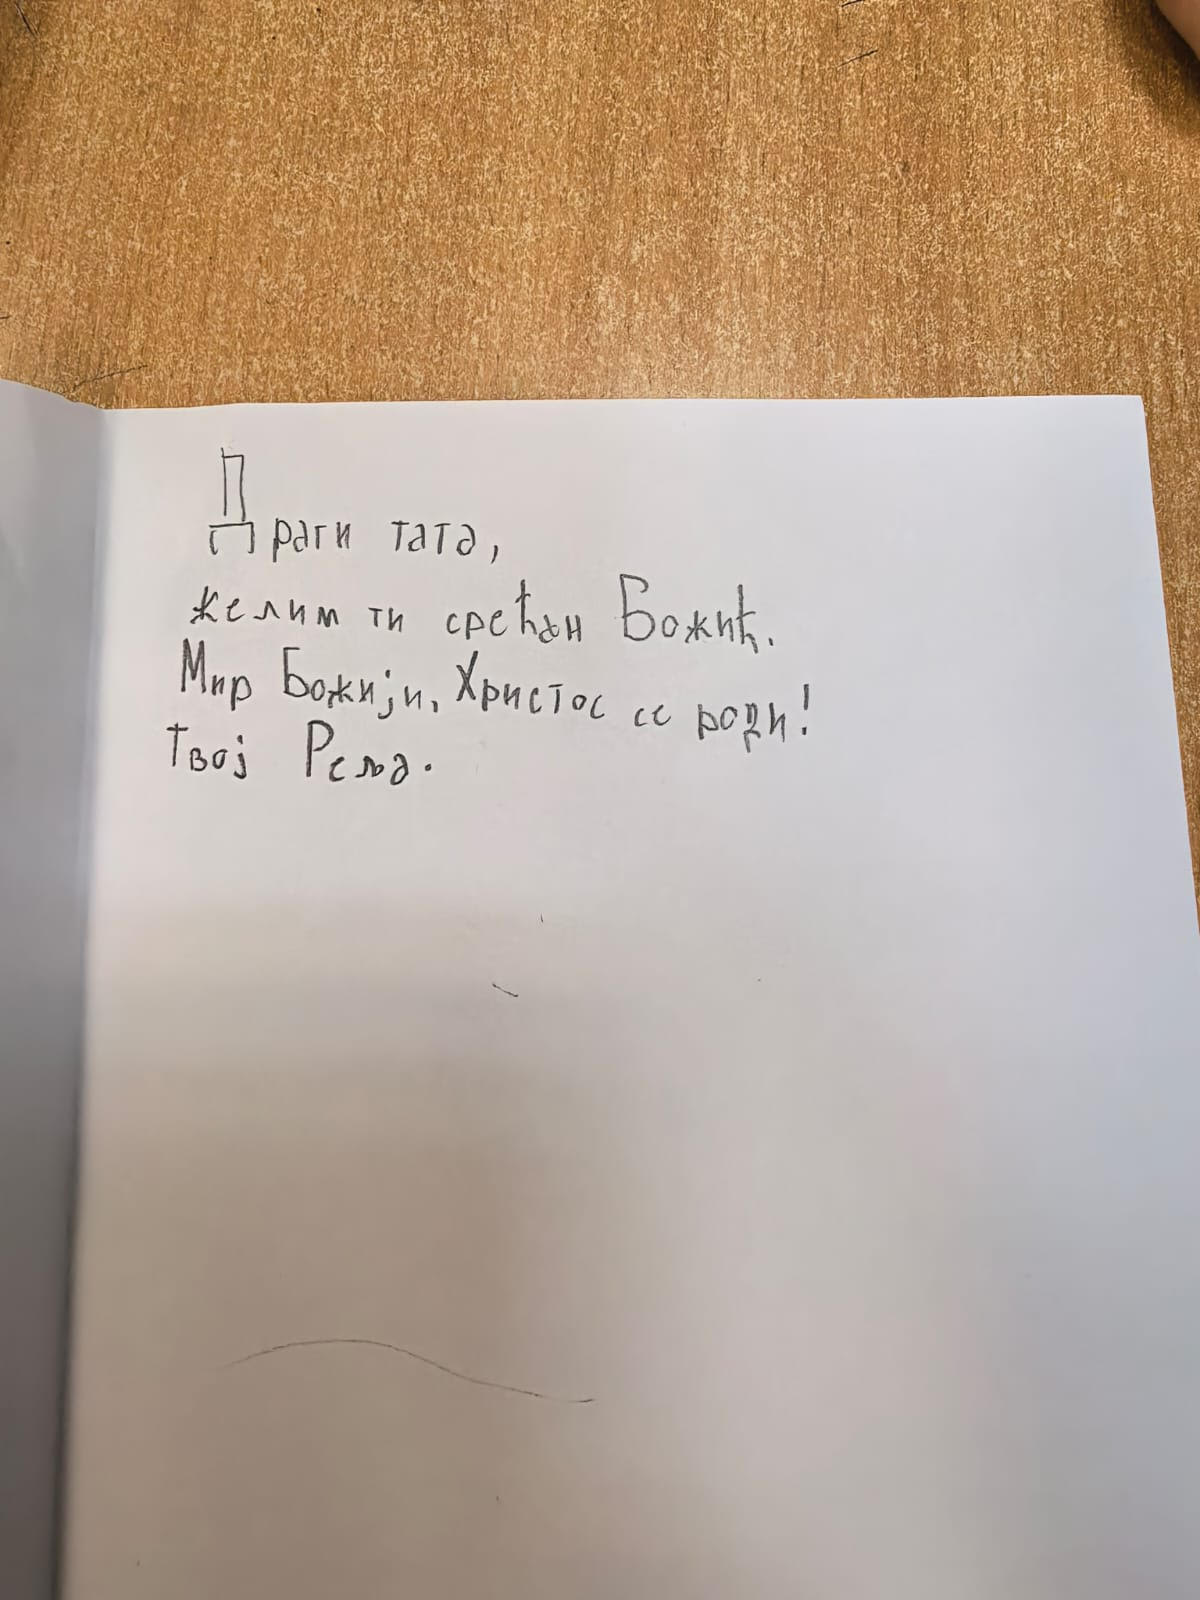 Драги тата,
желим ти срећан Божић.
Мир Божији, Христос се роди!
Твој Реља.